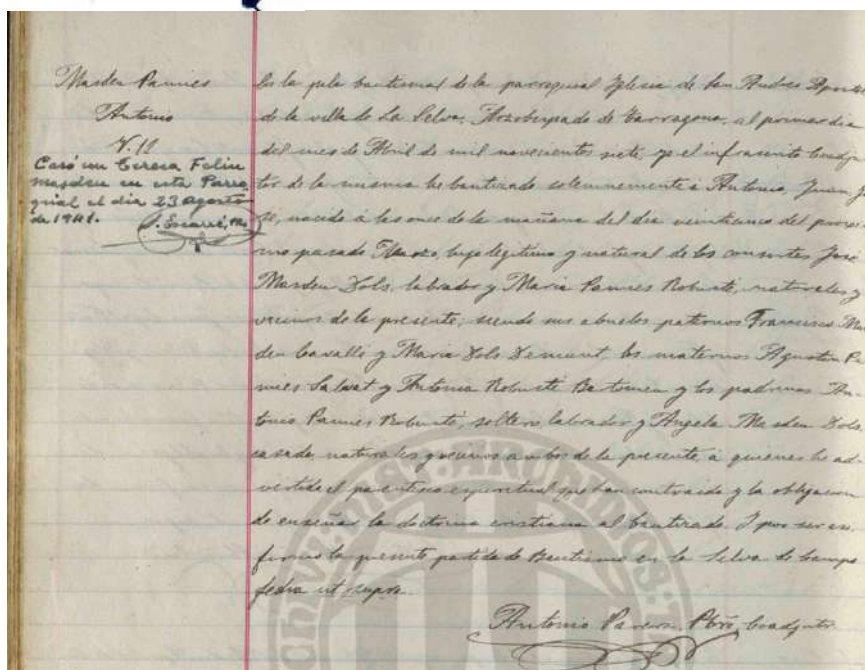 Masdeu Pamies
Antonio
N. 12
Casó con Teresa Feliu
Masdeu en esta Parro
quial el dia 23 agosto
de 1941.
J. Escarré, Pbo.
En la pila bautismal de la parroquial Iglesia de San Andres Apostol
de la villa de La Selva, Arzobispado de Tarragona, al primer dia
del mes de Abril de mil novecientos siete, yo el infrascrito Coadju
tor de la misma he bautizado solemnemente á Antonio, Juan, Jo
sé, nacido á las once de la mañana del dia veinticinco del proxi
mo pasado Marzo, hijo legítimo y natural de los consortes José
Masdeu Dols, labrador y Maria Pamies Robusté, naturales y
vecinos de la presente; siendo sus abuelos paternos Francisco Mas
deu Cavallé y Maria Dols, los maternos Agustin Pa
mies Salvat y Antonia Robusté Bertomeu y los padrinos An
tonio Pamies Robusté, soltero, labrador y Angela Masdeu Dols,
casada, naturales y vecinos ambos de la presente á quienes he ad
vertido el parentesco espiritual que han contraido y la obligacion
de enseñar la doctrina cristiana al bautizado. Y por ser asi
firmo la presente partida de Bautismo en la Selva de Campo
fecha ut supra.
Antonio Pbro. Coadjutor